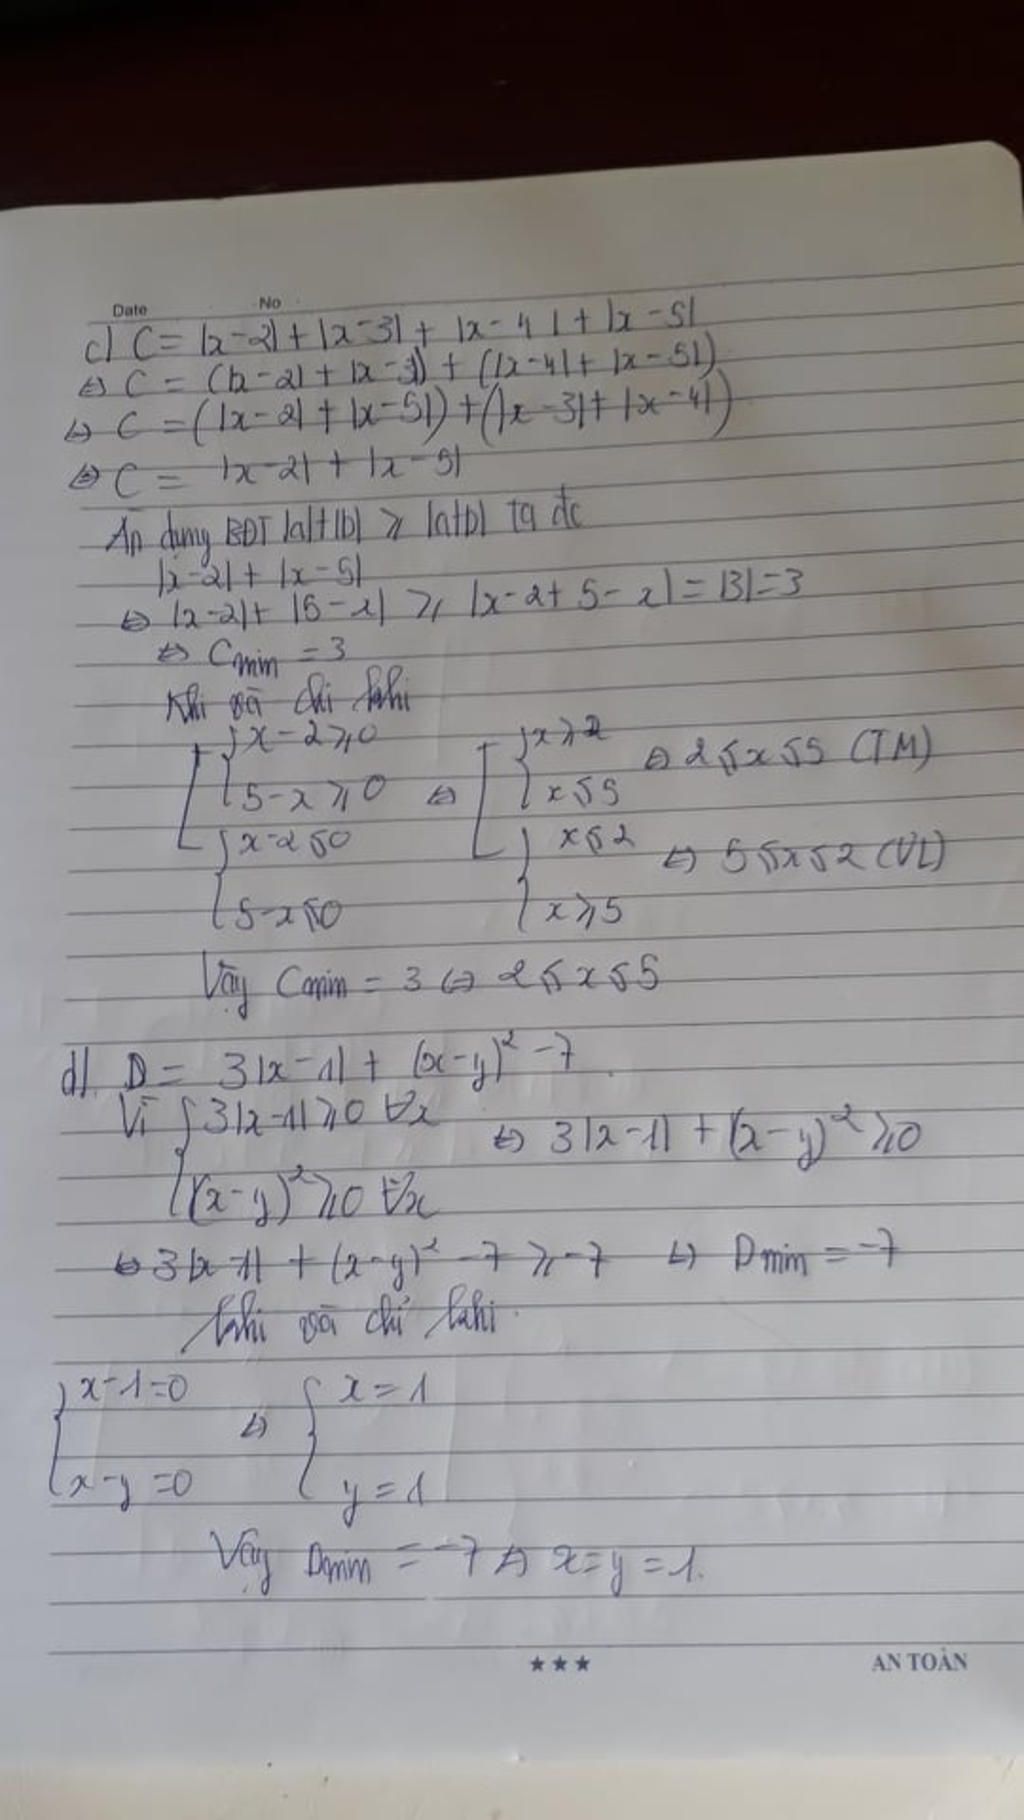 Date No
c) C = |x-2| + |x-3| + |x-4| + |x-5|
⇔ C = (|x-2| + |x-3|) + (|x-4| + |x-5|)
⇔ C = (|x-2| + |x-5|) + (|x-3| + |x-4|)
⇔ C = |x-2| + |x-5|
Áp dụng BĐT |a|+|b| ≥ |a+b| ta đc
|x-2| + |x-5|
⇔ |x-2| + |5-x| ≥ |x-2+5-x| = |3| = 3
⇔ Cmin = 3
Khi và chỉ khi
[ { x-2≥0 [ { x≥2 ⇔ 2≤x≤5 (TM)
5-x≥0 ⇔ x≤5
{ x-2≤0 { x≤2 ⇔ 5≤x≤2 (VL)
5-x≤0 x≥5
Vậy Cmin = 3 ⇔ 2≤x≤5
d) D = 3|x-1| + (x-y)² - 7
Vì { 3|x-1|≥0 ∀x ⇔ 3|x-1| + (x-y)² ≥0
(x-y)² ≥0 ∀x
⇔ 3|x-1| + (x-y)² - 7 ≥ -7 ⇔ Dmin = -7
khi và chỉ khi
{ x-1=0 ⇔ { x=1
x-y=0 y=1
Vậy Dmin = -7 ⇔ x=y=1.
★★★ AN TOÀN